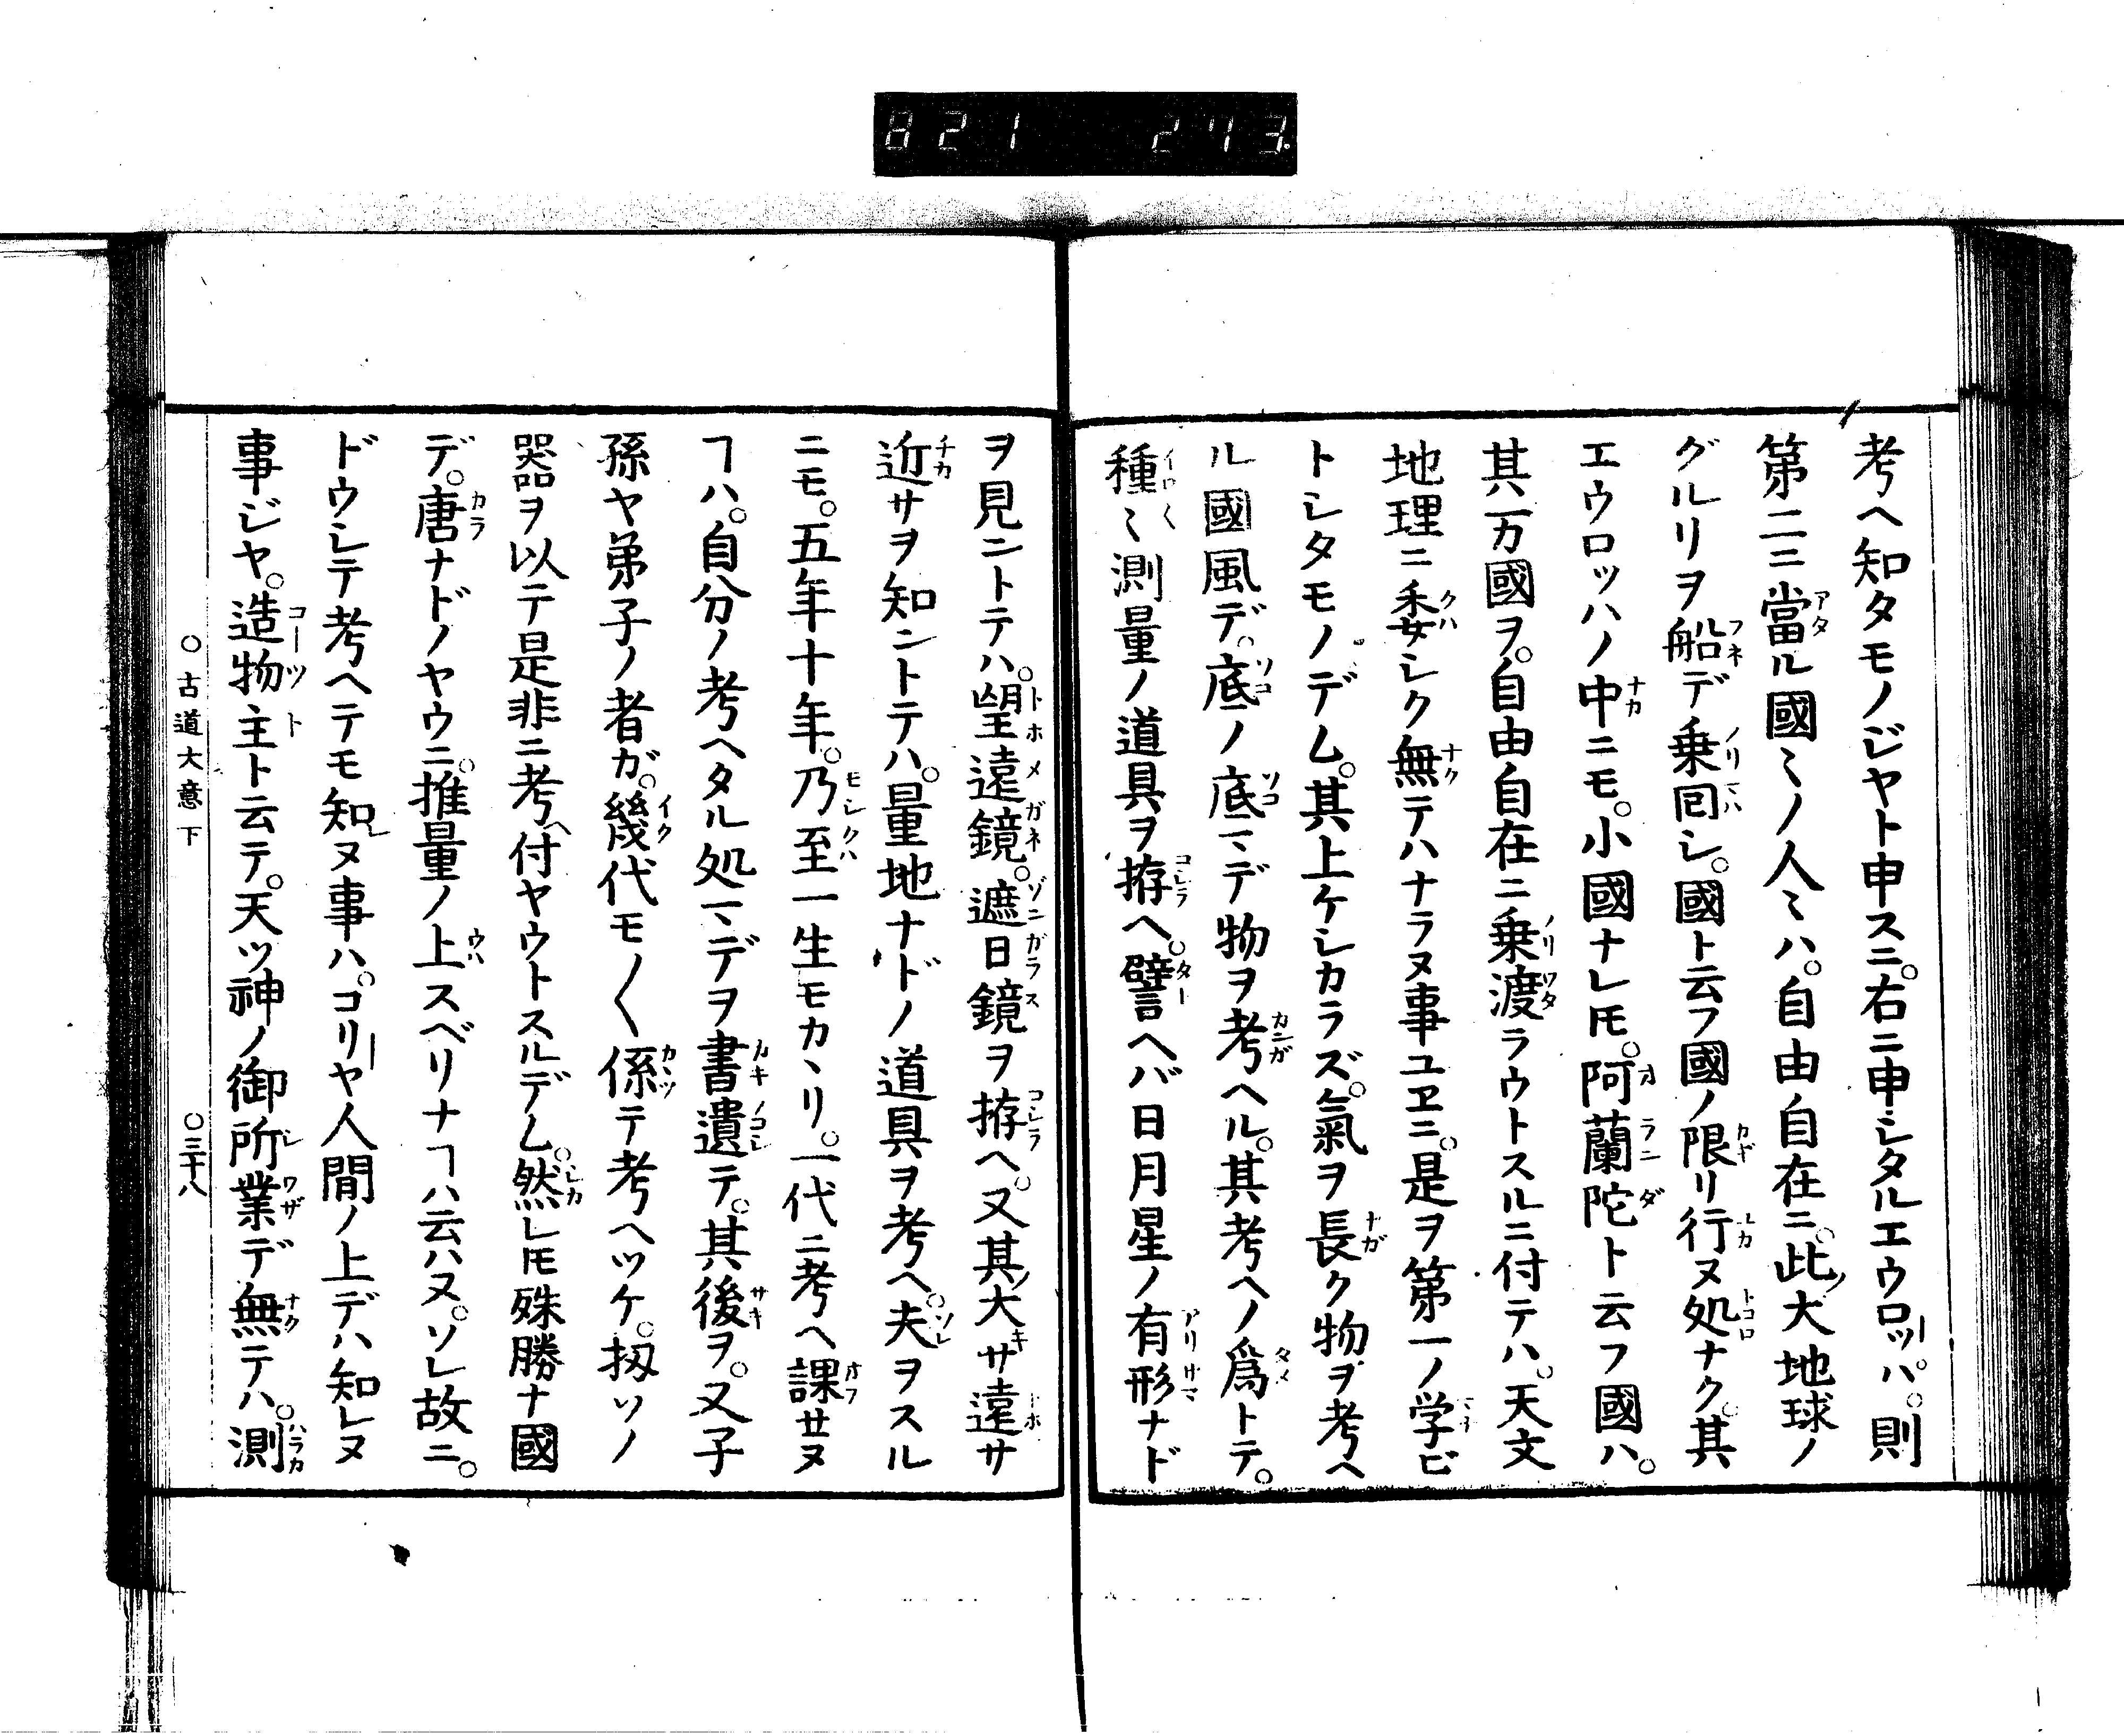 821 273
考ヘ知タモノジヤト申スニ。右ニ申シタルエウロッパ。則
第二ニ當ル國〻ノ人〻ハ。自由自在ニ。此大地球ノ
グルリヲ船デ乗回シ。國ト云フ國ノ限リ行ヌ処ナク。其
エウロッハノ中ニモ。小國ナレ𪜈。阿蘭陀ト云フ國ハ。
其一万國ヲ。自由自在ニ乗渡ラウトスルニ付テハ。天文
地理ニ委シク無テハナラヌ事ユヱニ。是ヲ第一ノ学ビ
トシタモノデム。其上ケシカラズ。氣ヲ長ク物ヲ考ヘ
ル國風デ。底ノ底マデ物ヲ考ヘル。其考ヘノ爲トテ。
種〻測量ノ道具ヲ拵ヘ。譬ヘバ日月星ノ有形ナド
ヲ見ントテハ。望遠鏡。遮日鏡ヲ拵ヘ。又其大サ遠サ
近サヲ知ントテハ。量地ナドノ道具ヲ考ヘ。夫ヲスル
ニモ。五年十年。乃至一生モカヽリ。一代ニ考ヘ課サヌ
ヿハ。自分ノ考ヘタル処マデヲ書遺テ。其後ヲ。又子
孫ヤ弟子ノ者ガ。幾代モ〱係テ考ヘツケ。扨ソノ
器ヲ以テ是非ニ考ヘ付ヤウトスルデム。然レ𪜈殊勝ナ國
デ。唐ナドノヤウニ。推量ノ上スベリナヿハ云ハヌ。ソレ故ニ。
ドウシテ考ヘテモ知レヌ事ハ。ゴリヤ人間ノ上デハ知レヌ
事ジヤ。造物主ト云テ。天ツ神ノ御所業デ無テハ。測
○古道大意下 ○三十八